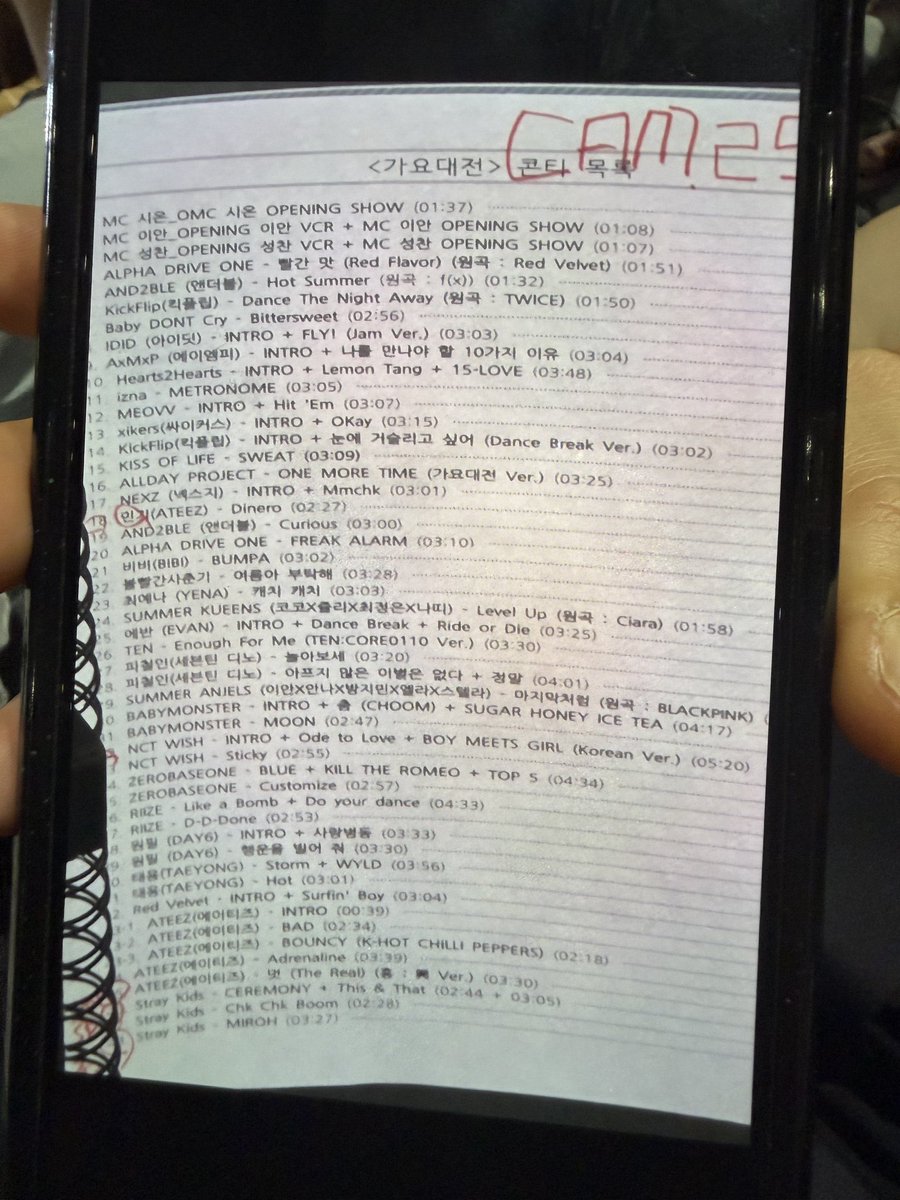 CAM25
<가요대전> 콘티 목록
MC 시온_OMC 시온 OPENING SHOW (01:37)
MC 이안_OPENING 이안 VCR + MC 이안 OPENING SHOW (01:08)
MC 성찬_OPENING 성찬 VCR + MC 성찬 OPENING SHOW (01:07)
ALPHA DRIVE ONE - 빨간 맛 (Red Flavor) (원곡 : Red Velvet) (01:51)
AND2BLE (앤더블) - Hot Summer (원곡 : f(x)) (01:32)
KickFlip(킥플립) - Dance The Night Away (원곡 : TWICE) (01:50)
Baby DONT Cry - Bittersweet (02:56)
IDID (아이딧) - INTRO + FLY! (Jam Ver.) (03:03)
9. AxMxP (에이엠피) - INTRO + 나를 만나야 할 10가지 이유 (03:04)
10 Hearts2Hearts - INTRO + Lemon Tang + 15-LOVE (03:48)
11. izna - METRONOME (03:05)
12. MEOVV - INTRO + Hit 'Em (03:07)
13. xikers(싸이커스) - INTRO + OKay (03:15)
14. KickFlip(킥플립) - INTRO + 눈에 거슬리고 싶어 (Dance Break Ver.) (03:02)
15. KISS OF LIFE - SWEAT (03:09)
16. ALLDAY PROJECT - ONE MORE TIME (가요대전 Ver.) (03:25)
17 NEXZ (넥스지) - INTRO + Mmchk (03:01)
18 민기(ATEEZ) - Dinero (02:27)
19 AND2BLE (앤더블) - Curious (03:00)
20 ALPHA DRIVE ONE - FREAK ALARM (03:10)
비비(BIBI) - BUMPA (03:02)
22. 볼빨간사춘기 - 여름아 부탁해 (03:28)
23. 최예나 (YENA) - 캐치 캐치 (03:03)
24. SUMMER KUEENS (코코X쥴리X최정은X나띠) - Level Up (원곡 : Ciara) (01:58)
25. 에반 (EVAN) - INTRO + Dance Break + Ride or Die (03:25)
26 TEN - Enough For Me (TEN:CORE0110 Ver.) (03:30)
27. 피철인(세븐틴 디노) - 놀아보세 (03:20)
28. 피철인(세븐틴 디노) - 아프지 않은 이별은 없다 + 정말 (04:01)
29 SUMMER ANJELS (이안X안나X방지민X엘라X스텔라) - 마지막처럼 (원곡 : BLACKPINK) (
30 BABYMONSTER - INTRO + 춤 (CHOOM) + SUGAR HONEY ICE TEA (04:17)
BABYMONSTER - MOON (02:47)
NCT WISH - INTRO + Ode to Love + BOY MEETS GIRL (Korean Ver.) (05:20)
NCT WISH - Sticky (02:55)
ZEROBASEONE - BLUE + KILL THE ROMEO + TOP 5 (04:34)
ZEROBASEONE - Customize (02:57)
RIIZE - Like a Bomb + Do your dance (04:33)
RIIZE - D-D-Done (02:53)
원필 (DAY6) - INTRO + 사랑병동 (03:33)
원필 (DAY6) - 행운을 빌어 줘 (03:30)
태용(TAEYONG) - Storm + WYLD (03:56)
태용(TAEYONG) - Hot (03:01)
Red Velvet - INTRO + Surfin' Boy (03:04)
ATEEZ(에이티즈) - INTRO (00:39)
ATEEZ(에이티즈) - BAD (02:34)
ATEEZ(에이티즈) - BOUNCY (K-HOT CHILLI PEPPERS) (02:18)
ATEEZ(에이티즈) - Adrenaline (03:39)
ATEEZ(에이티즈) - 멋 (The Real) (흥 : 興 Ver.) (03:30)
Stray Kids - CEREMONY + This & That (02:44 + 03:05)
Stray Kids - Chk Chk Boom (02:28)
Stray Kids - MIROH (03:27)